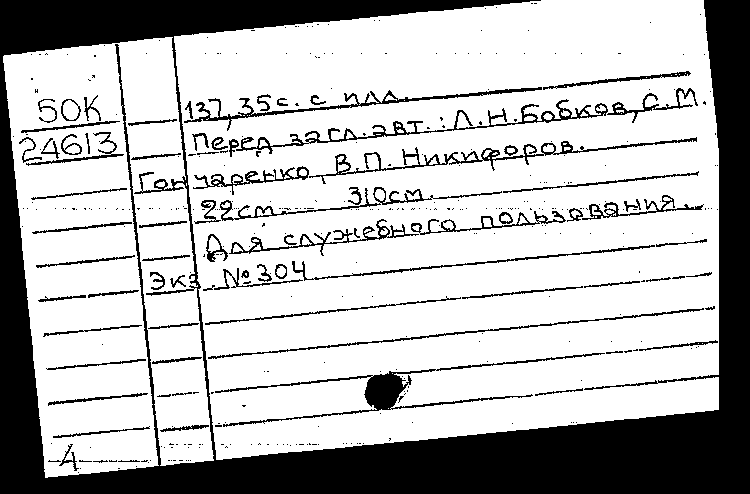 50К 137,35с. с илл.
24613 Перед загл. авт.: Л.Н. Бобков, С.М.
Гончаренко, В.П. Никифоров.
22см. 310см.
Для служебного пользования.
Экз. №304
4